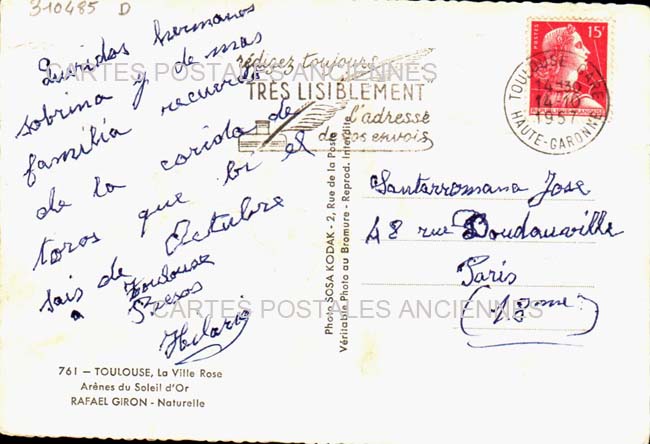 310485 D
Queridos hermanos
sobrina y de mas
familia recuerdo
de la corida de
toros que bi el
sais de Octubre
a Toulouse
Besos
Hilario
rédigez toujours
TRÈS LISIBLEMENT
l'adresse
de vos envois
POSTES
15F
TOULOUSE GARE
4-30
14-10
1957
HAUTE-GARONNE
Santarromana Jose
48 rue Doudauville
Paris
(18eme)
Photo SOSA KODAK - 2, Rue de la Poste
Véritable Photo au Bromure - Reprod. Interdite
761 — TOULOUSE, La Ville Rose
Arènes du Soleil d'Or
RAFAEL GIRON - Naturelle
CARTES POSTALES ANCIENNES
CARTES POSTALES ANCIENNES